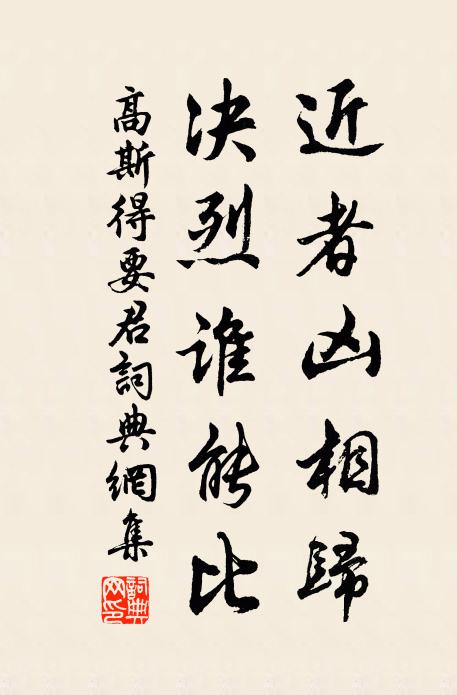 近者凶相歸
决烈誰能比
高斯得要君詞典網集
詞典網印